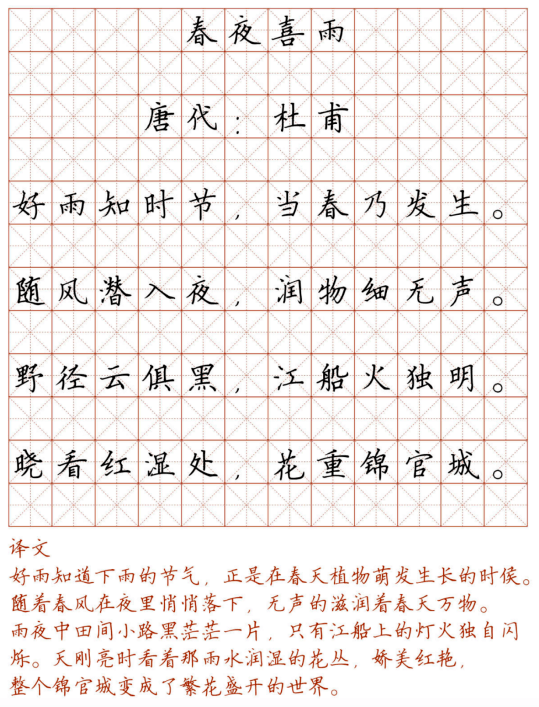 春夜喜雨
唐代：杜甫
好雨知时节，当春乃发生。
随风潜入夜，润物细无声。
野径云俱黑，江船火独明。
晓看红湿处，花重锦官城。
译文
好雨知道下雨的节气，正是在春天植物萌发生长的时侯。
随着春风在夜里悄悄落下，无声的滋润着春天万物。
雨夜中田间小路黑茫茫一片，只有江船上的灯火独自闪
烁。天刚亮时看着那雨水润湿的花丛，娇美红艳，
整个锦官城变成了繁花盛开的世界。